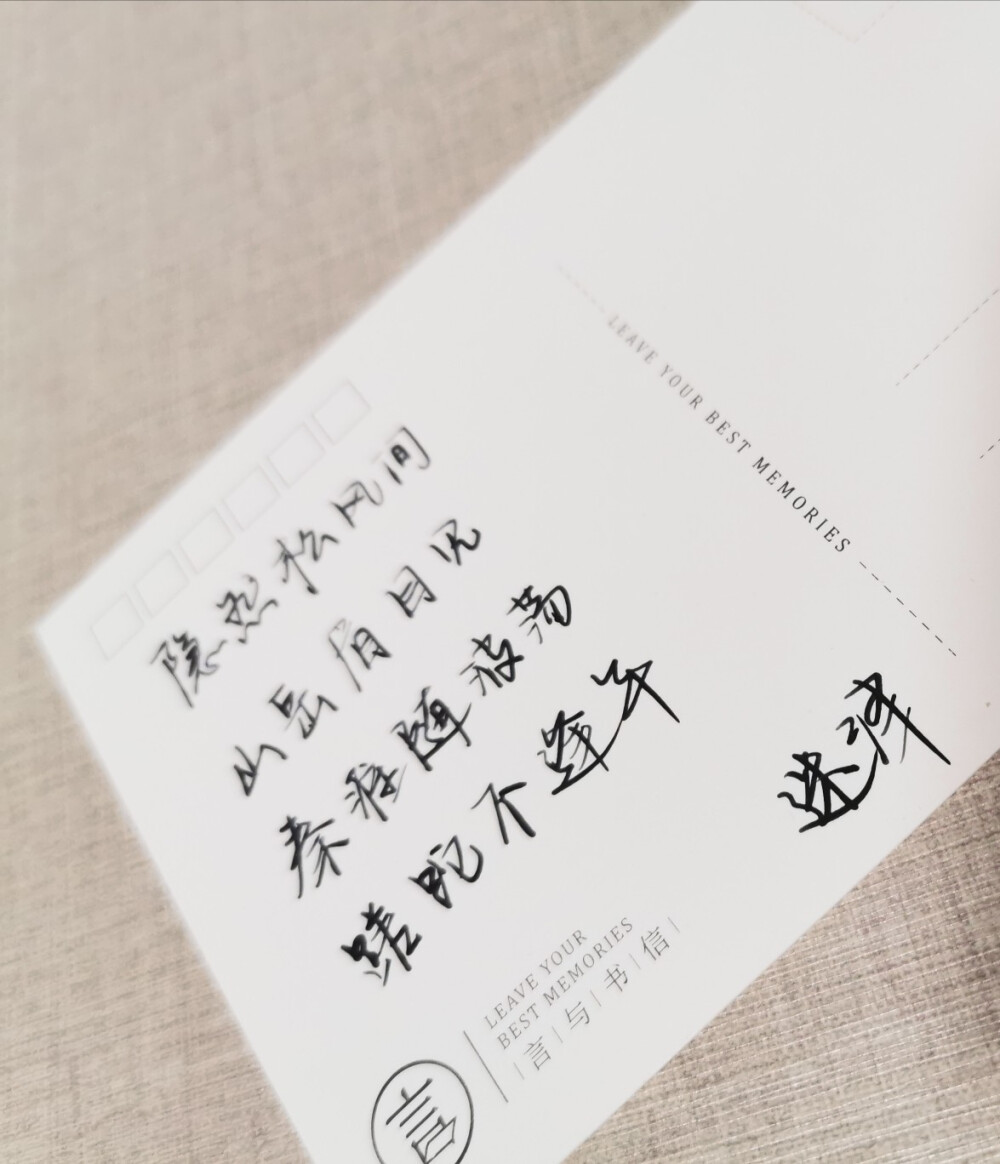 隐松风间
山岳眉目
秦随波荡
蹉跎不逢
LEAVE YOUR BEST MEMORIES
LEAVE YOUR
BEST MEMORIES
|言|与|书|信|
言